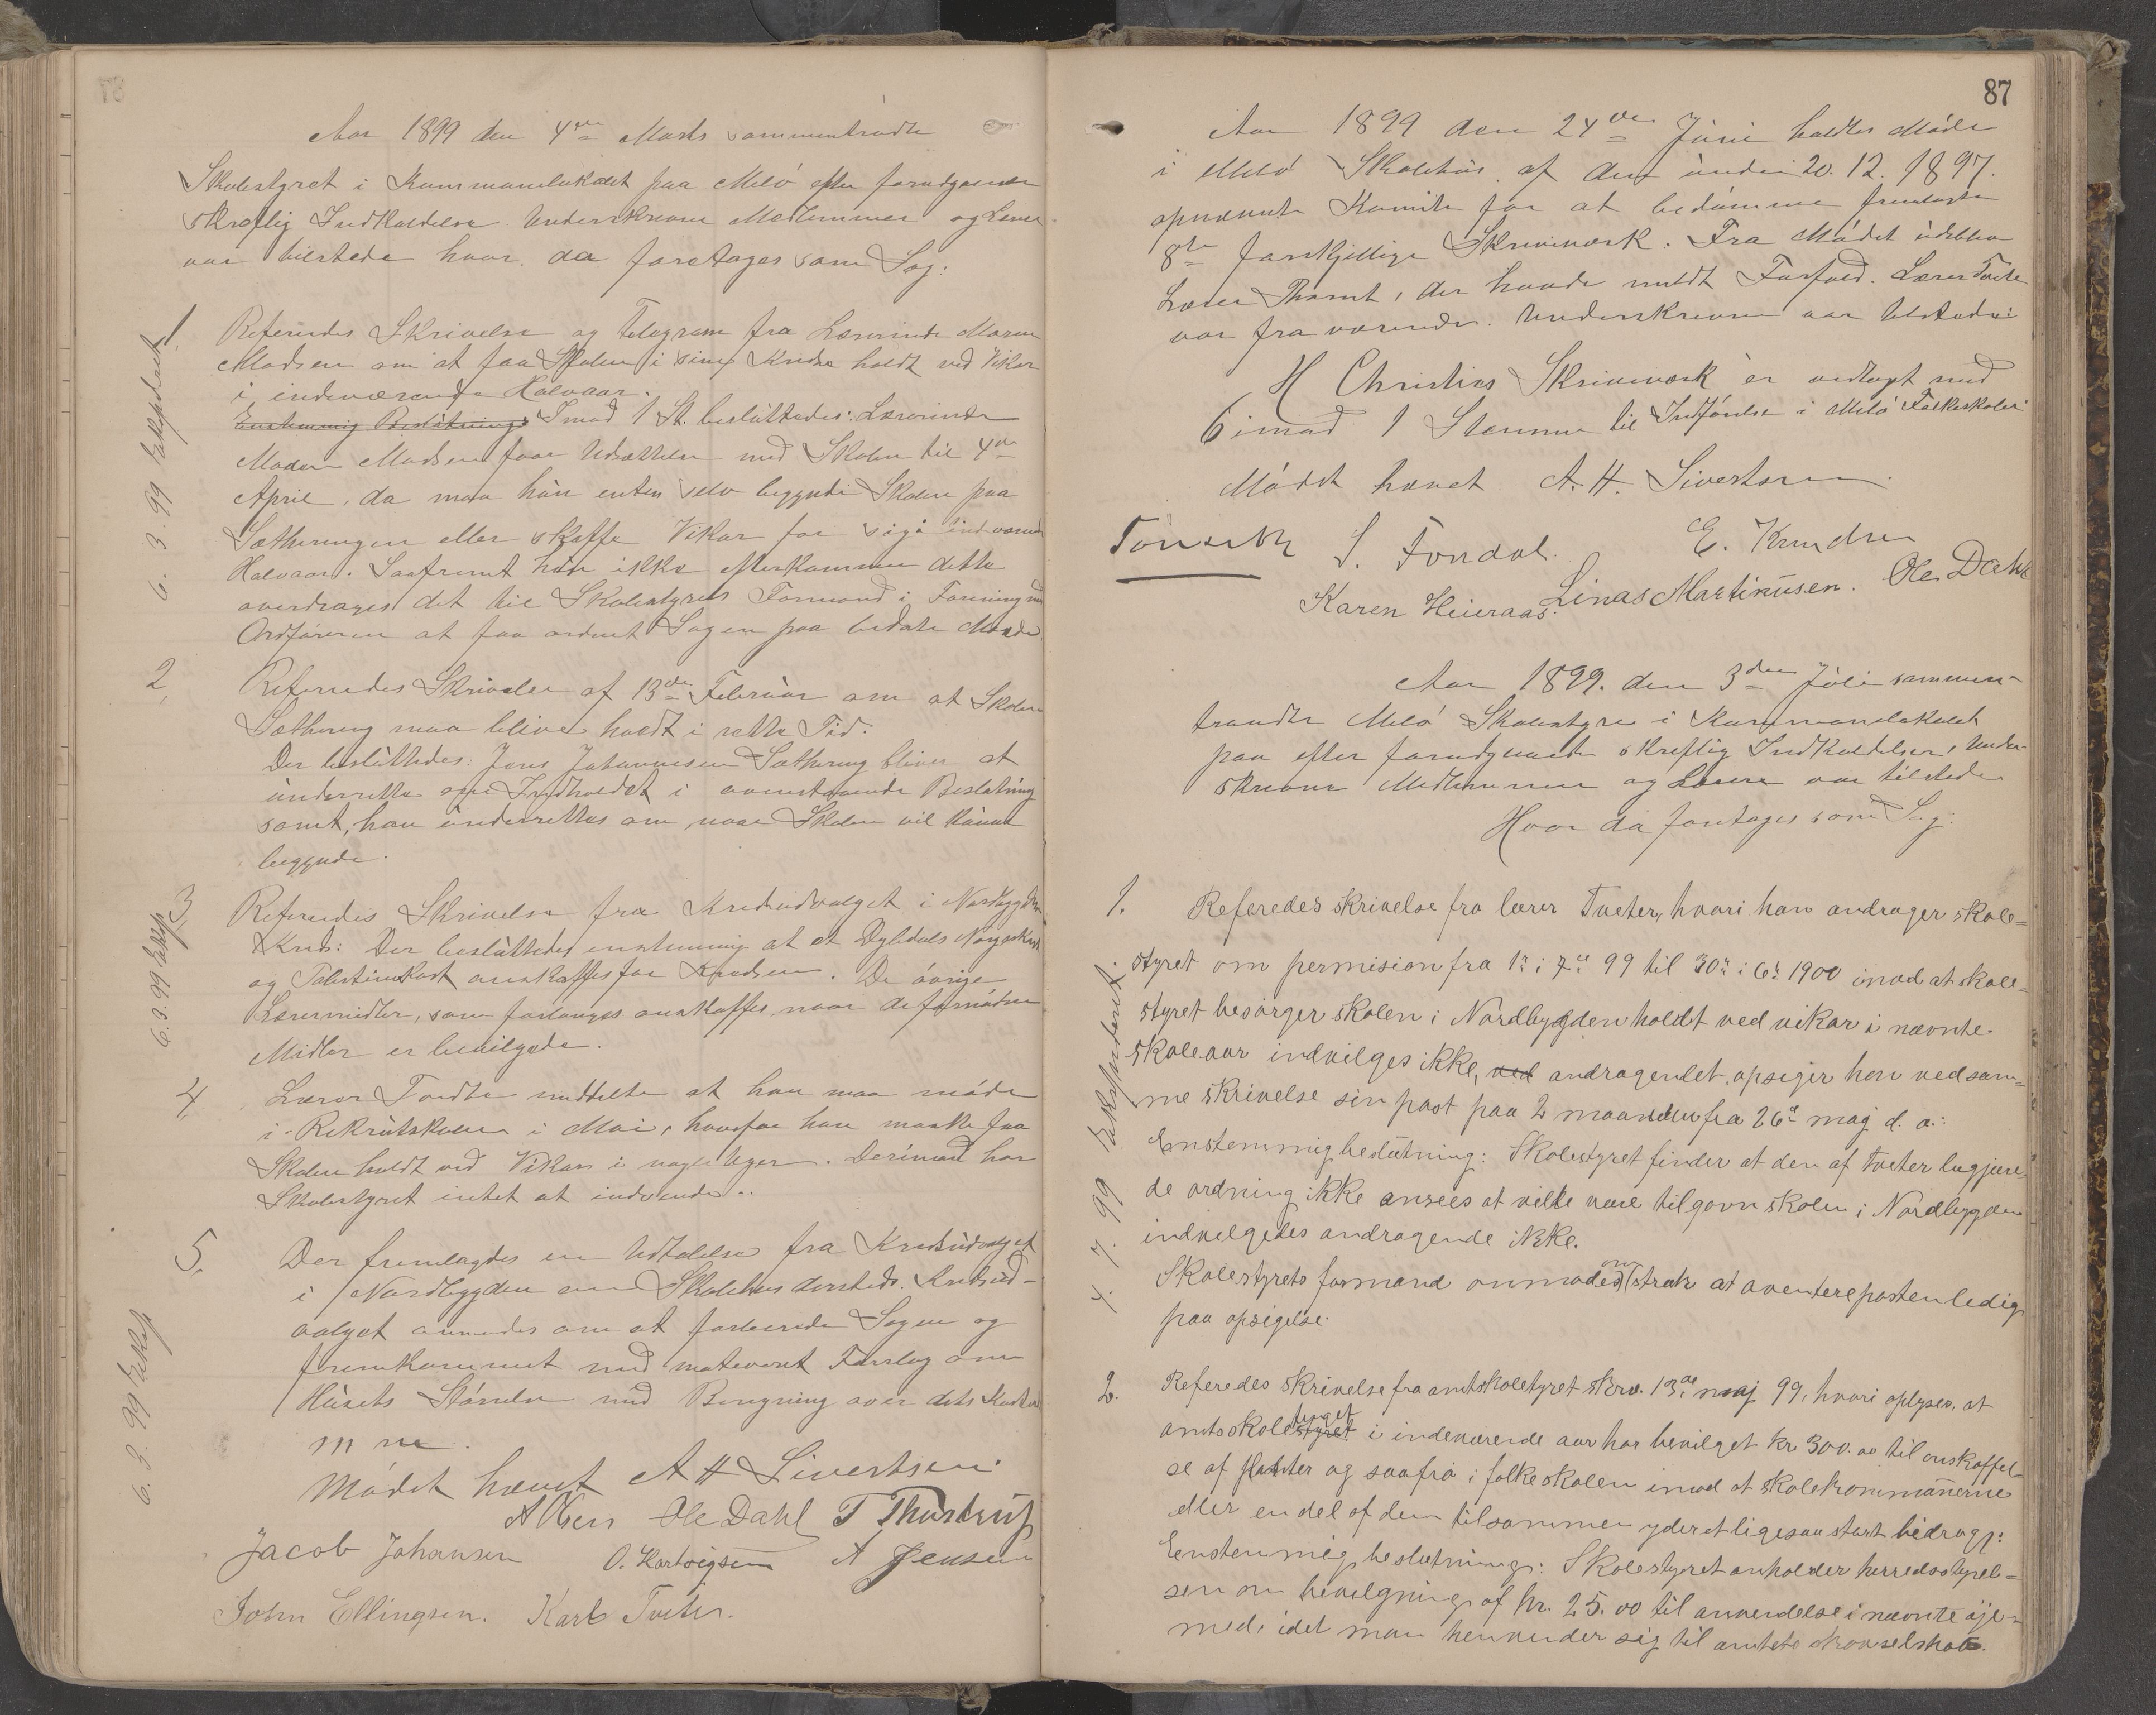 Aar 1899 den 4de Marts sammentraadte
Skolestyret i Kommunelokalet paa Melö efter forudgaaende
skreftlig Indkaldelse. Underskrevne Medlemmer og Lærer
var tilstede hvor da foretages som Sag:
1. Referedes Skrivelse og Telegram fra Lærerinde Maren
Madsen om at faa Skolen i sin Kreds holdt ved Vikar
i indeværende Halvaar.
Enstemmig Beslutning: Imod 1 St. besluttedes: Lærerinde
Maren Madsen faar Udsættelse med Skolen til 4de
April, da maa hun enten selv begynde Skolen paa
Sætheringen eller skaffe Vikar for sig i indevær
Halvaar. Saafremt hun ikke efterkommer dette
overdrages det til Skolestyrets Formand i Forening med
Ordföreren at faa ordnet Sagen paa bedste Maade.
6. 3. 99 Exspederet
2, Referedes Skrivelse af 13de Februar om at Skolen
Sæthering maa blive holdt i rette Tid.
Der besluttedes: Jens Johannesen Sæthering bliver at
underrette om Indholdet i ovenstaaende Beslutning
samt, han underrettes om, naar Skolen vil kunne
begynde.
3, Referedes Skrivelse fra Kredsudvalget i Nordbygden
Kreds: Der besluttedes enstemmig at et Dybdals Norgeskart
og Palestinakart anskaffes for Kredsen. De övrige
Læremidler, som forlanges anskaffes, naar de fornödne
Midler er bevilgede.
6. 3. 99 Eksp
4, Lærer Tvedte meddelte at han maa möde
i Rekrutskolen i Mai, hvorfor han maatte faa
Skolen holdt ved Vikar i nogle Uger. Derimod har
Skolestyret intet at indvende.
5, Der fremlagdes en Udtalelse fra Kredsudvalget
i Nordbygden om Skolehus dersteds. Kredsud-
valget anmodes om at forberede Sagen og
fremkommet med motiveret Forslag om
Husets Störrelse med Beregning over dets Kostende
m m.
6. 3. 99 Eksp
Mödet hævet A H Sivertsen
A Olsen Ole Dahl T Thustrup
Jacob Johansen O. Hartvigsen A Jensen
John Ellingsen. Karl Tveter.
87
Aar 1899 den 24de Juni holdtes Möde
i Melö Skolehus af den under 20. 12. 1897.
opnævnte Komite for at bedömme fremlagte
8te forskjellige Skriveværk. Fra Mödet udeblev
Lærer Thomt, der havde meldt Forfald. Lærer Tveter
var fraværende. Underskrevne var tilstede:
H Christies Skriveværk er vedtaget med
6 imod 1 Stemme til Indförelse i Melö Folkeskoler
Mödet hævet. A. H. Sivertsen
S. Fondal. E. Knudsen
Karen Heieraas. Linas Martinusen. Ole Dahl
Aar 1899. den 3die Juli sammen-
traadte Melö Skolestyre i Kommunelokalet
paa efter forudgaaende skreftlig Indkaldelse, Under-
skrevne Medlemmer og Lærere var tilstede
Hvor da foretages som Sag:
1. Referedes skrivelse fra lærer Tveter, hvori han andrager skole-
styret om permision fra 1ste i 7de 99 til 30te i 6te 1900 imod at skole-
styret besörger skolen i Nordbygden holdt ved vikar i nævnte
skoleaar indvilges ikke, ved andragendet, opsiger han ved sam-
me skrivelse sin post paa 2 maaneder fra 26de maj d. a.:
Enstemmig beslutning: Skolestyret finder at den af Tveter begjære-
de ordning ikke ansees at ville være til gavn skolen i Nordbygden
indvelgedes andragende ikke.
Skolestyrets formand anmodes om strak at avertere posten ledig
paa opsigelse.
4. 7. 99 Ekspederet.
2. Referedes skrivelse fra amtskolestyret skrv. 13de maj 99, hvori oplyses, at
amtsskolestyret tinget i indeværende aar har bevilget kr 300.00 til anskaffel-
se af planter og saafrö i folkeskolen imod at skolekommunerne
eller en del af dem tilsammen yder et ligesaa stort bidrag:
Eenstemmig beslutning: Skolestyret anholder herredsstyrel-
sen om bevilgning af kr. 25.00 til anvendelse i nævnte öje-
med, idet man henvender sig til amtets skovselskab.